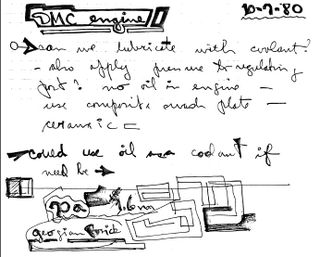 DMC engine
10-7-80
can we lubricate with coolant?
- also apply pressure to regulating
port? no oil in engine -
use composite swash plate -
ceramic
could use oil as a coolant if
need be →
pa 1.6mg
georgian brick